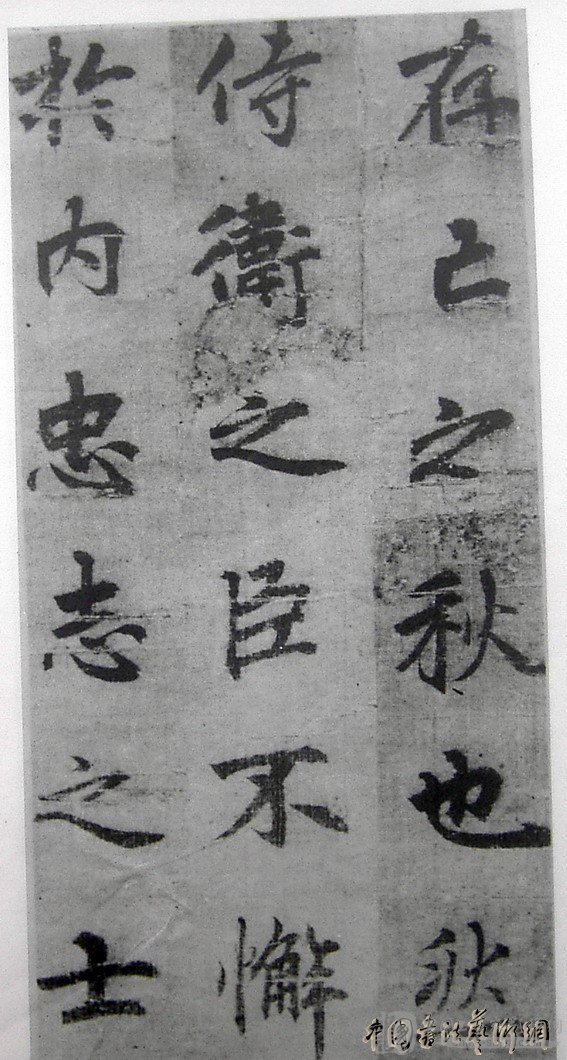 存亡之秋也然
侍衛之臣不懈
於内忠志之士
中國書法藝術網